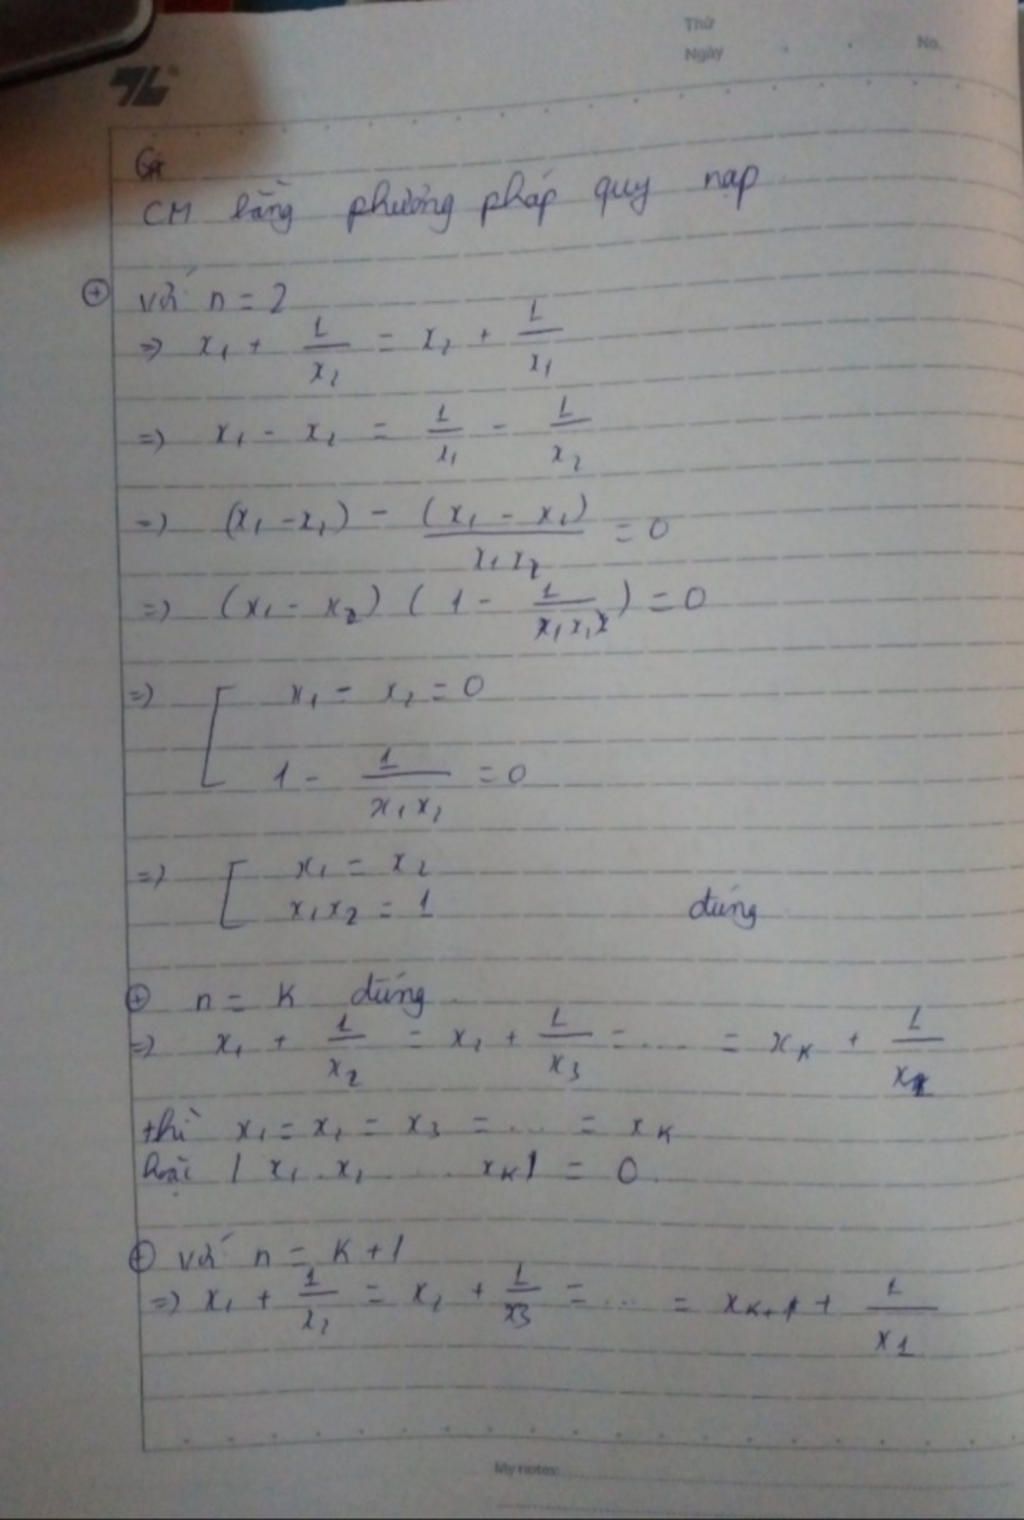 Thứ
Ngày No.
CM bằng phương pháp quy nạp
⊕ với n = 2
=> x₁ + 1/x₂ = x₂ + 1/x₁
=> x₁ - x₂ = 1/x₁ - 1/x₂
=> (x₁ - x₂) - (x₁ - x₂)/x₁x₂ = 0
=> (x₁ - x₂) (1 - 1/x₁x₂) = 0
=> [ x₁ = x₂ = 0
1 - 1/x₁x₂ = 0
=> [ x₁ = x₂
x₁x₂ = 1 đúng
⊕ n = K đúng
=> x₁ + 1/x₂ = x₂ + 1/x₃ = .... = x_K + 1/x₁
thì x₁ = x₂ = x₃ = ... = x_K
hoặc | x₁ . x₂ ... x_K | = 0.
⊕ với n = K + 1
=> x₁ + 1/x₂ = x₂ + 1/x₃ = ... = x_K+1 + 1/x₁
My notes: